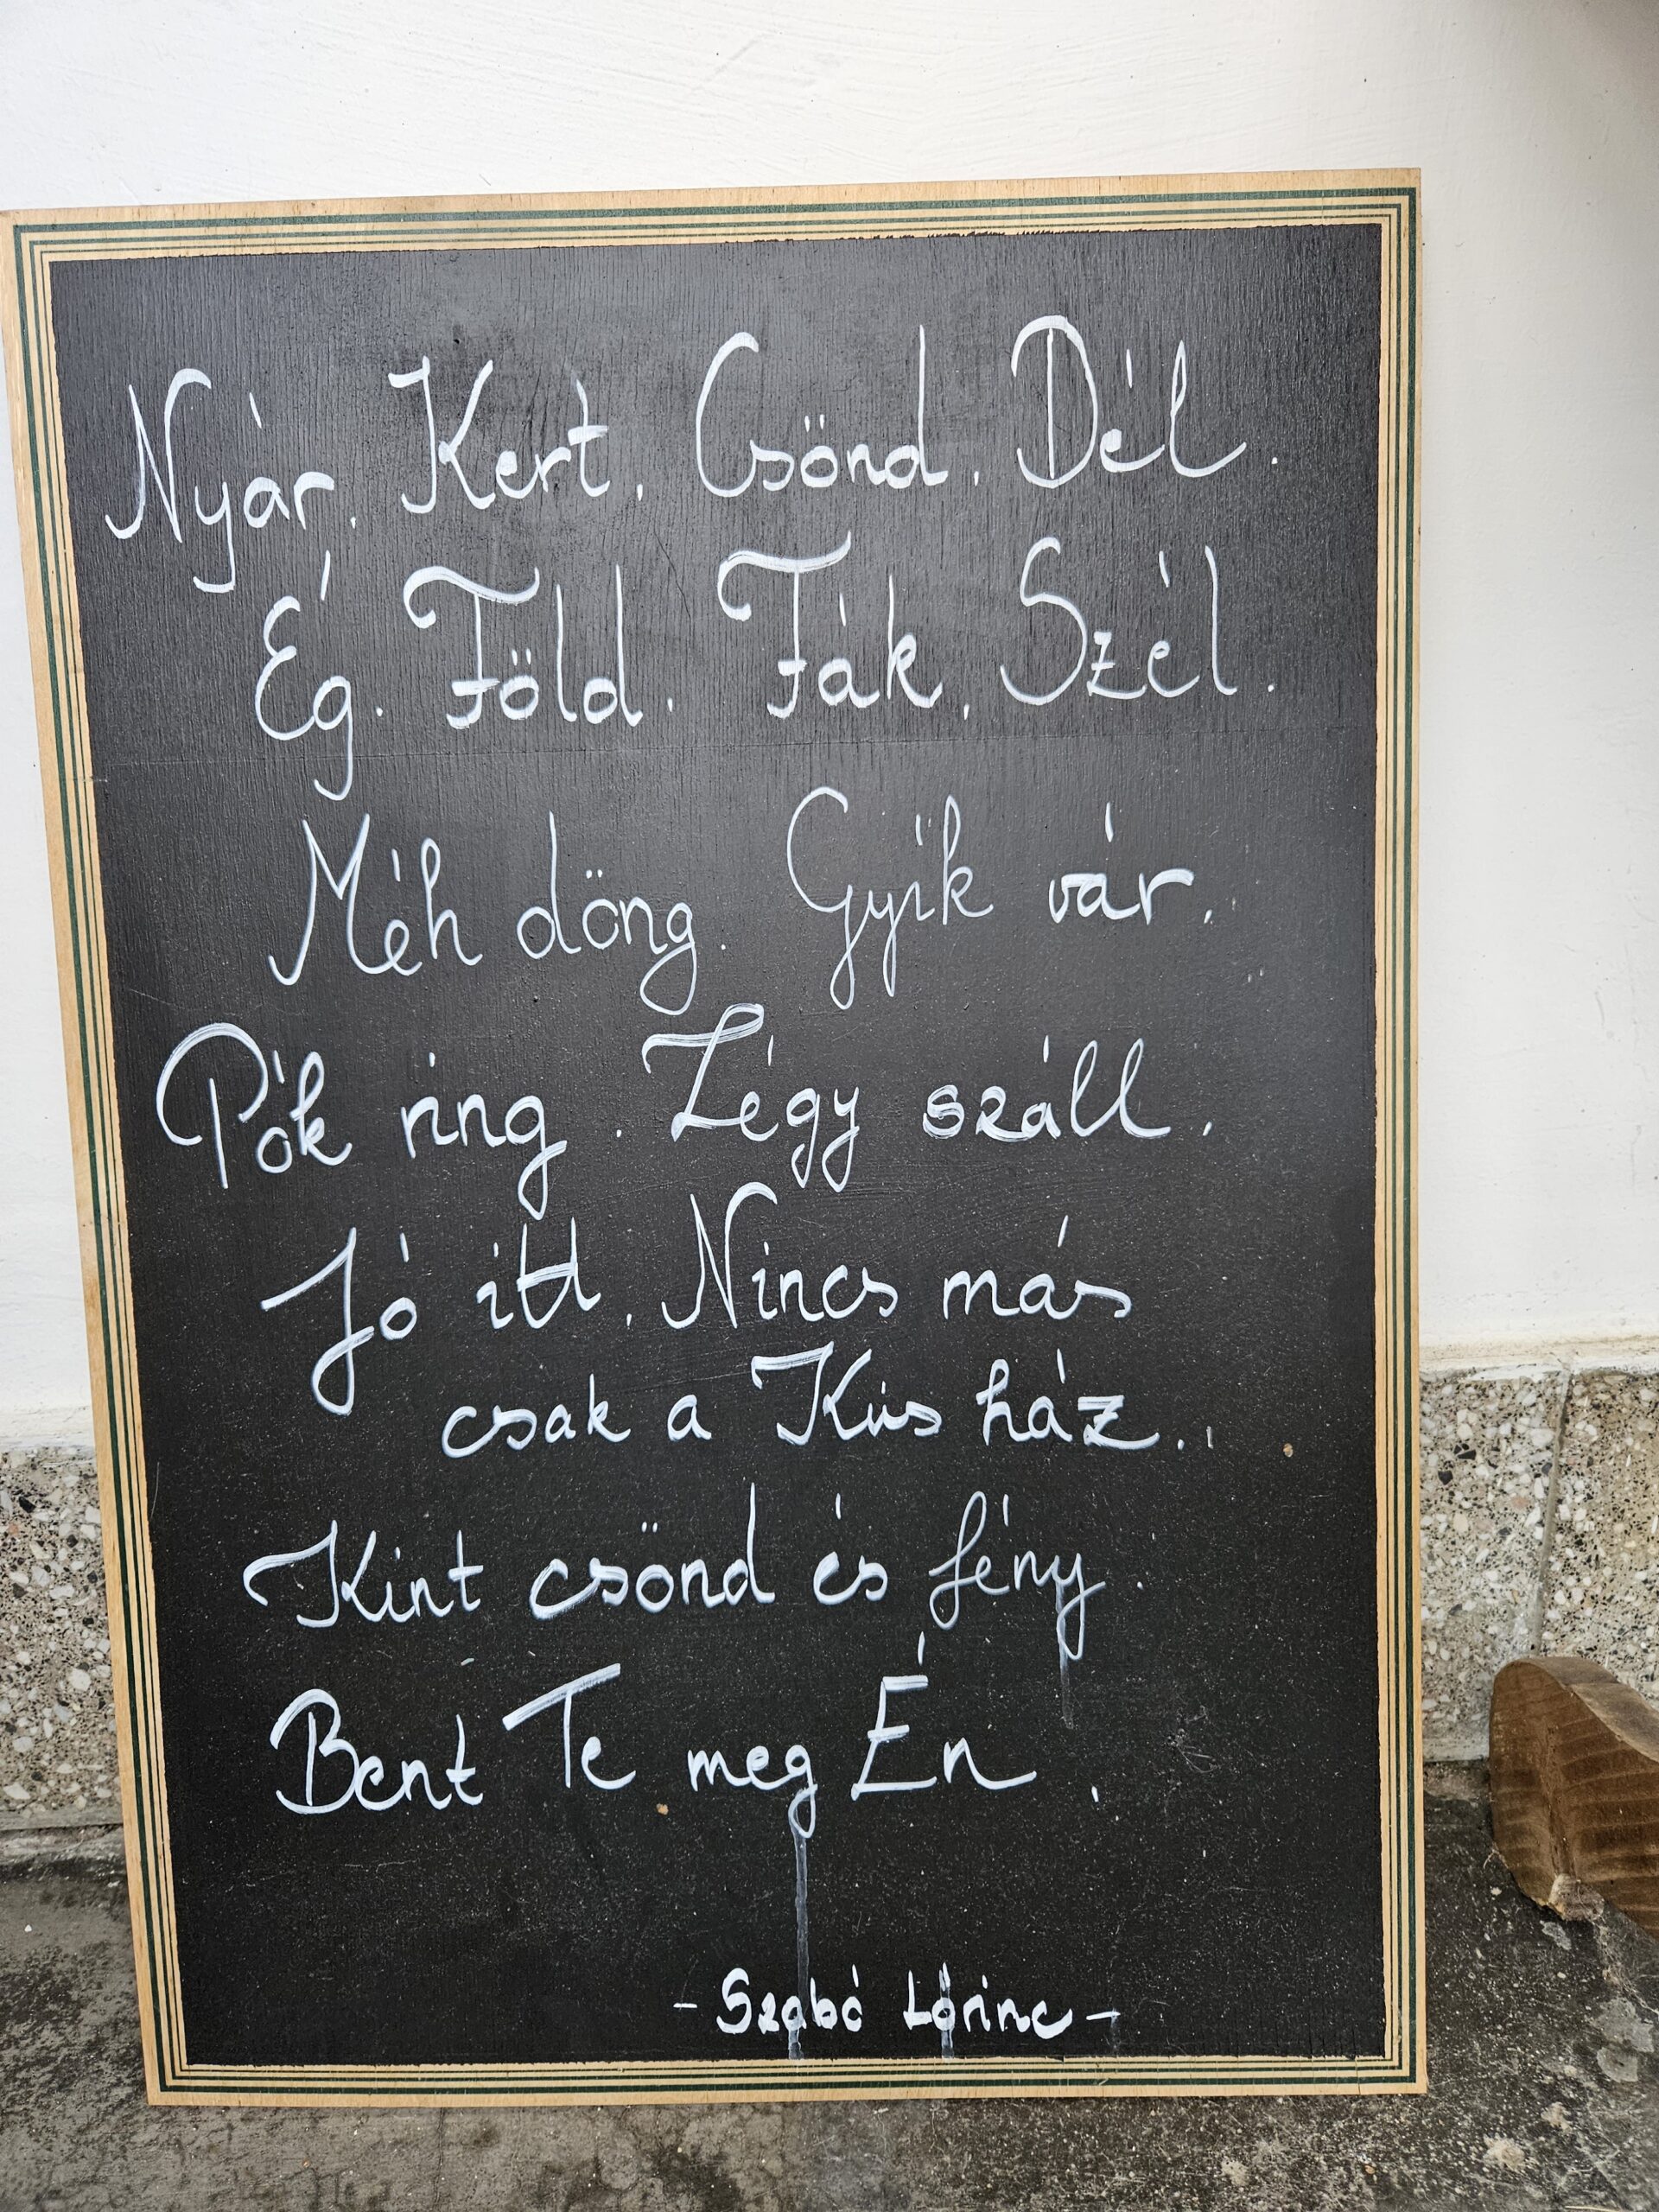 Nyár. Kert. Csönd. Dél.
Ég. Föld. Fák. Szél.
Méh döng. Gyík vár.
Pók ring. Légy száll.
Jó itt. Nincs más
csak a Kis ház..
Kint csönd és fény.
Bent Te meg Én.
- Szabó Lőrinc -